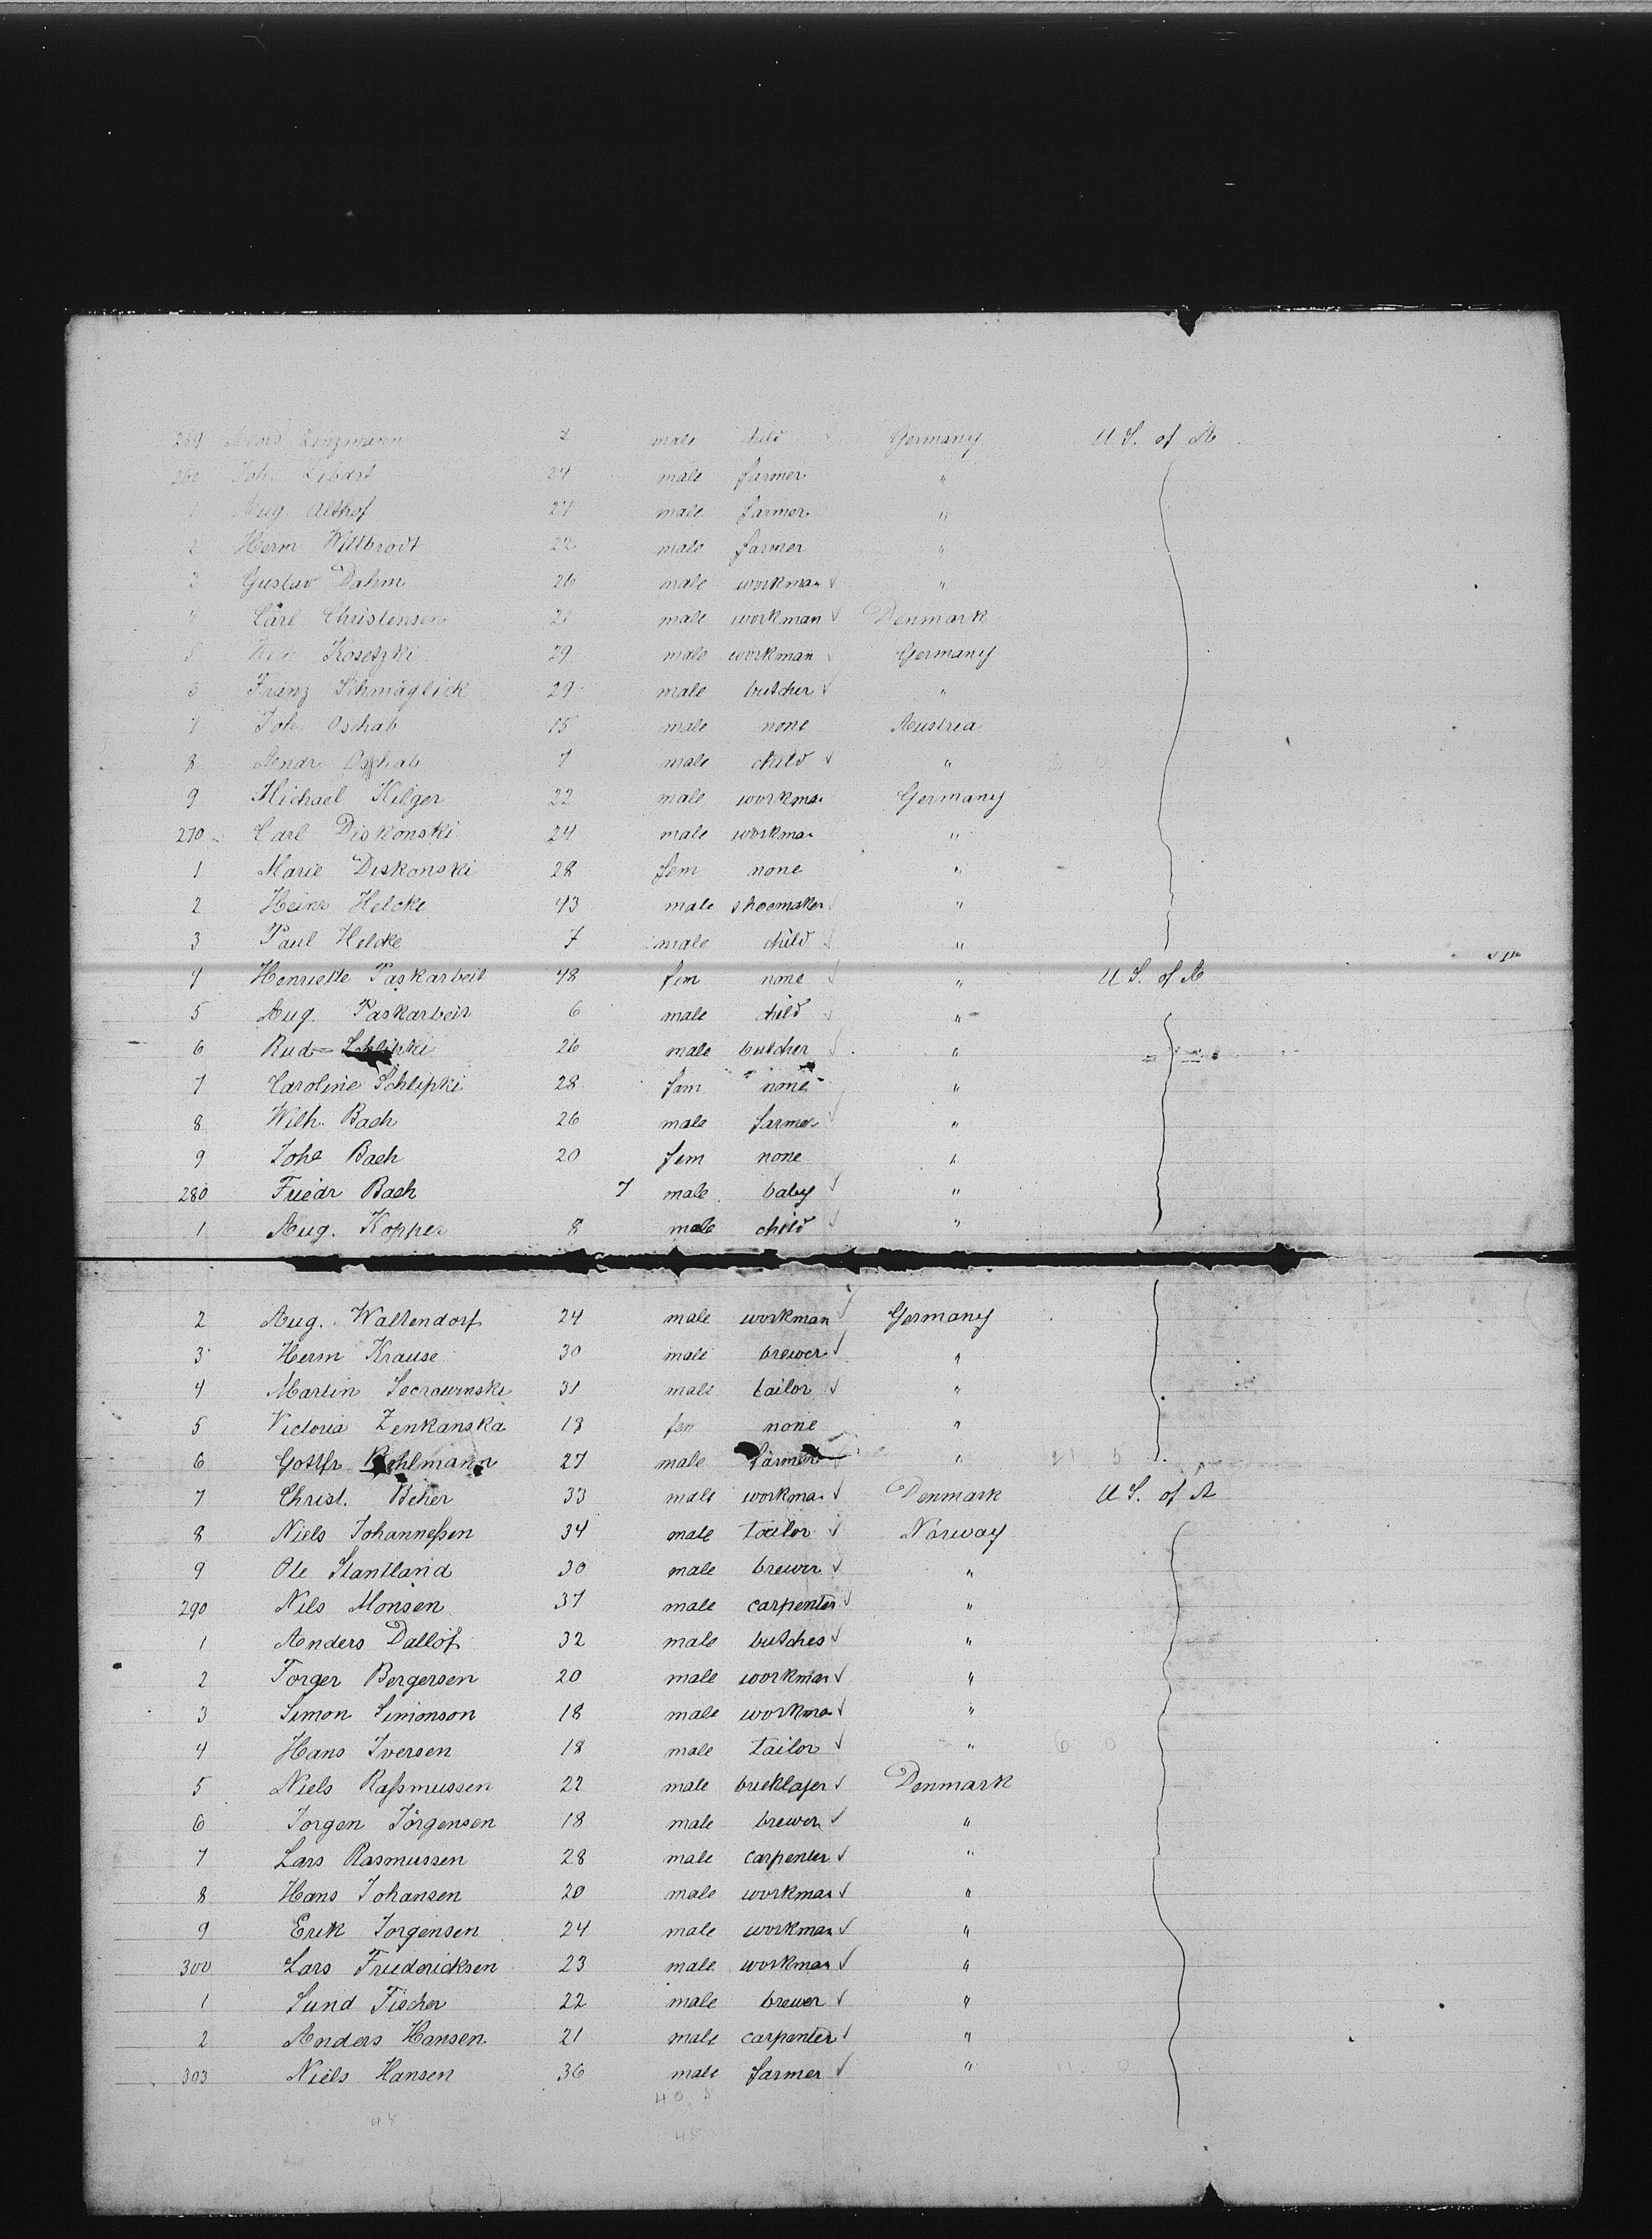 259 Alois Lenzmann 7 male child Germany U S. of A
260 Joh. 24 male farmer "
1 Aug Althof 27 male farmer "
2 Herm Willbrodt 22 male farmer "
3 Gustav Dahm 26 male workman "
4 Carl Christensen 21 male workman Denmark
5 Kosetzki 29 male workman Germany
6 Franz Schmäglick 29 male butcher "
7 Joh. Oschab 15 male none Austria
8 Andr. Oschab 7 male child "
9 Michael Kilger 22 male workman Germany
270 Carl Diskonski 24 male workman "
1 Marie Diskonski 28 fem none "
2 Heinr Helcke 43 male shoemaker "
3 Paul Helcke 7 male child "
4 Henriette Paskarbeit 48 fem none " U S. of A
5 Aug. Paskarbeit 6 male child "
6 Rud Schlipki 26 male butcher "
7 Caroline Schlipki 28 fem none "
8 Wilh. Bach 26 male farmer "
9 Joha Bach 20 fem none "
280 Friedr Bach 7 male baby "
1 Aug. Kopper 8 male child "
2 Aug. Waltendorf 24 male workman Germany
3 Herm Krause 30 male brewer "
4 Martin 31 male tailor "
5 Victoria Zenkanska 18 fem none "
6 Gottfr Kohlmann 27 male farmer "
7 Christ. Beher 33 male workman Denmark U S. of A
8 Niels Johanneßen 34 male tailor Norway
9 Ole Stantland 30 male brewer "
290 Nils Monsen 37 male carpenter "
1 Anders Dallöf 32 male butcher "
2 Torger Bergersen 20 male workman "
3 Simon Simonson 18 male workman "
4 Hans Iversen 18 male tailor "
5 Niels Raßmussen 22 male bricklayer Denmark
6 Jorgen Jörgensen 18 male brewer "
7 Lars Rasmussen 28 male carpenter "
8 Hans Johansen 20 male workman "
9 Erik Jorgensen 24 male workman "
300 Lars Friedericksen 23 male workman "
1 Sund Fischer 22 male brewer "
2 Anders Hansen 21 male carpenter "
303 Niels Hansen 36 male farmer "
40 8
48
48